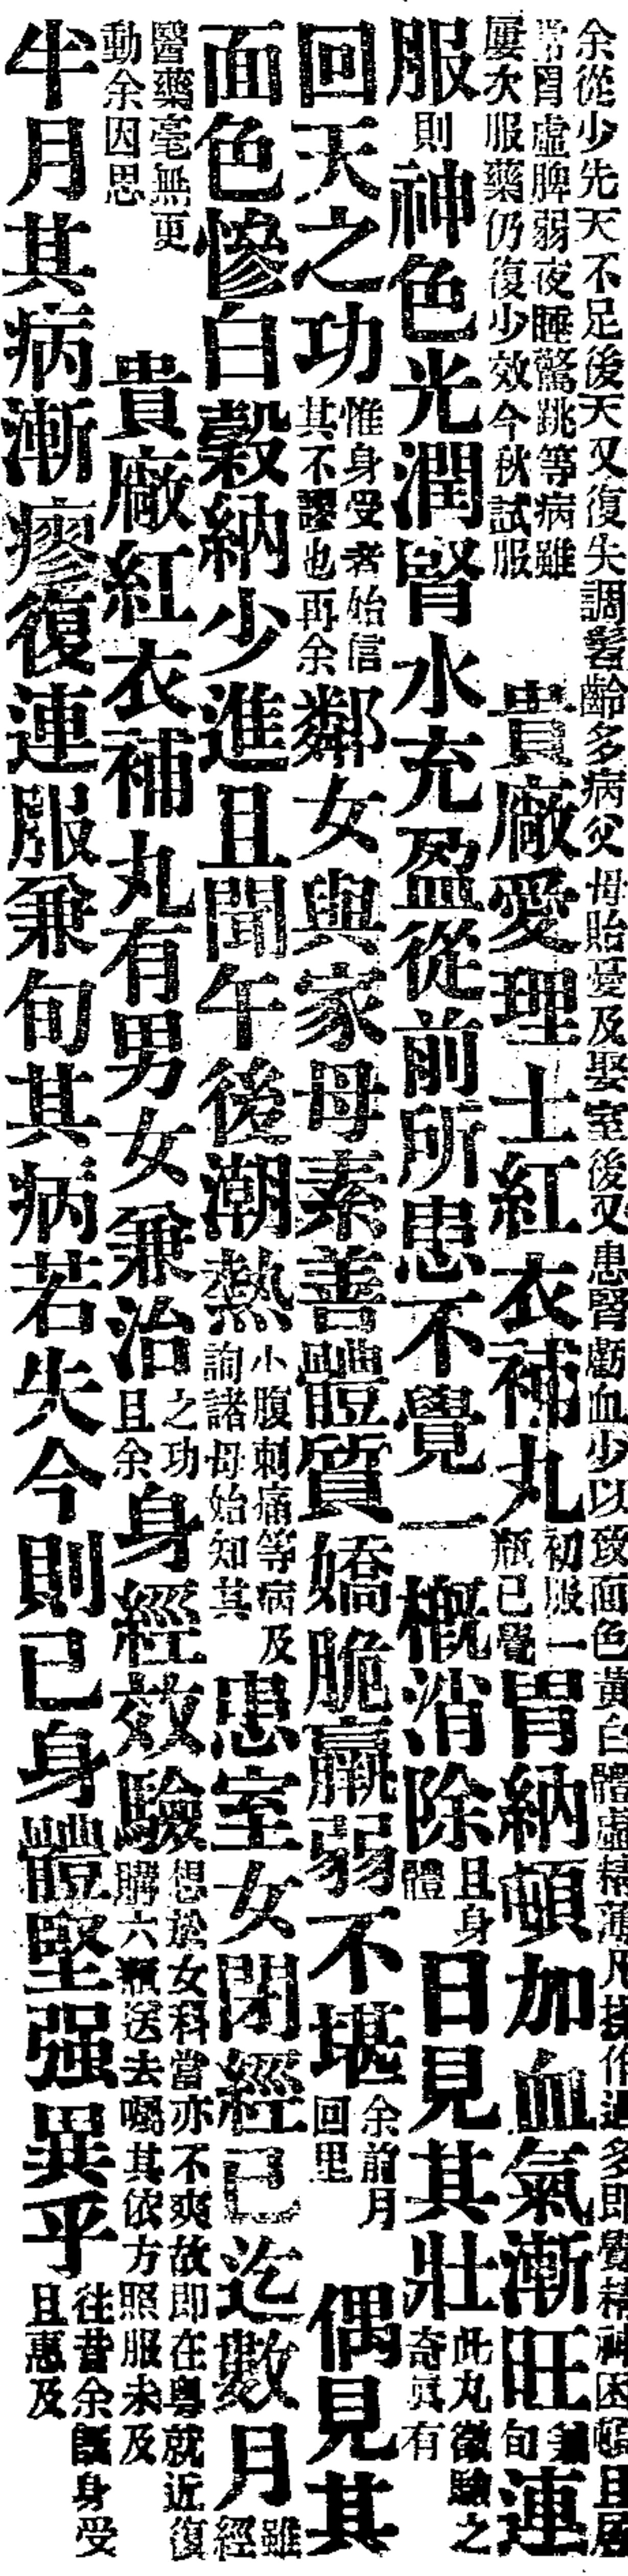 余從少先天不足後天又復失調髫齡多病父母貽憂及娶室後又患腎虧血少以致面色黃白體虛精薄凡操作過多即覺精神困頓且
常胃虛脾弱夜睡驚跳等病雖屢次服藥仍復少效今秋試服貴廠愛理士紅衣補丸初服一瓶已覺胃納頓加血氣漸旺兼旬連
服則神色光潤腎水充盈從前所患不覺一概消除且身體日見其壯此丸徵驗之奇眞有
回天之功惟身受者始信其不謬也再余鄰女與家母素善體質嬌脆羸弱不堪余前月回里偶見其
面色慘白穀納少進且聞午後潮熱小腹刺痛等病及詢諸母始知其患室女閉經已迄數月雖經
醫藥毫無更動余因思貴廠紅衣補丸有男女兼治之功且余身經效驗想於女科當亦不爽故即在粵就近復購六瓶送去囑其依方照服未及
半月其病漸瘳復連服兼旬其病若失今則已身體堅强異乎往昔余既身受且惠及